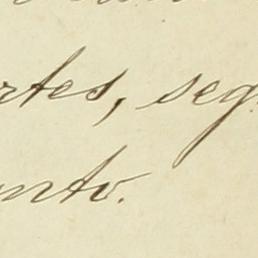 rtes, seg
nto.